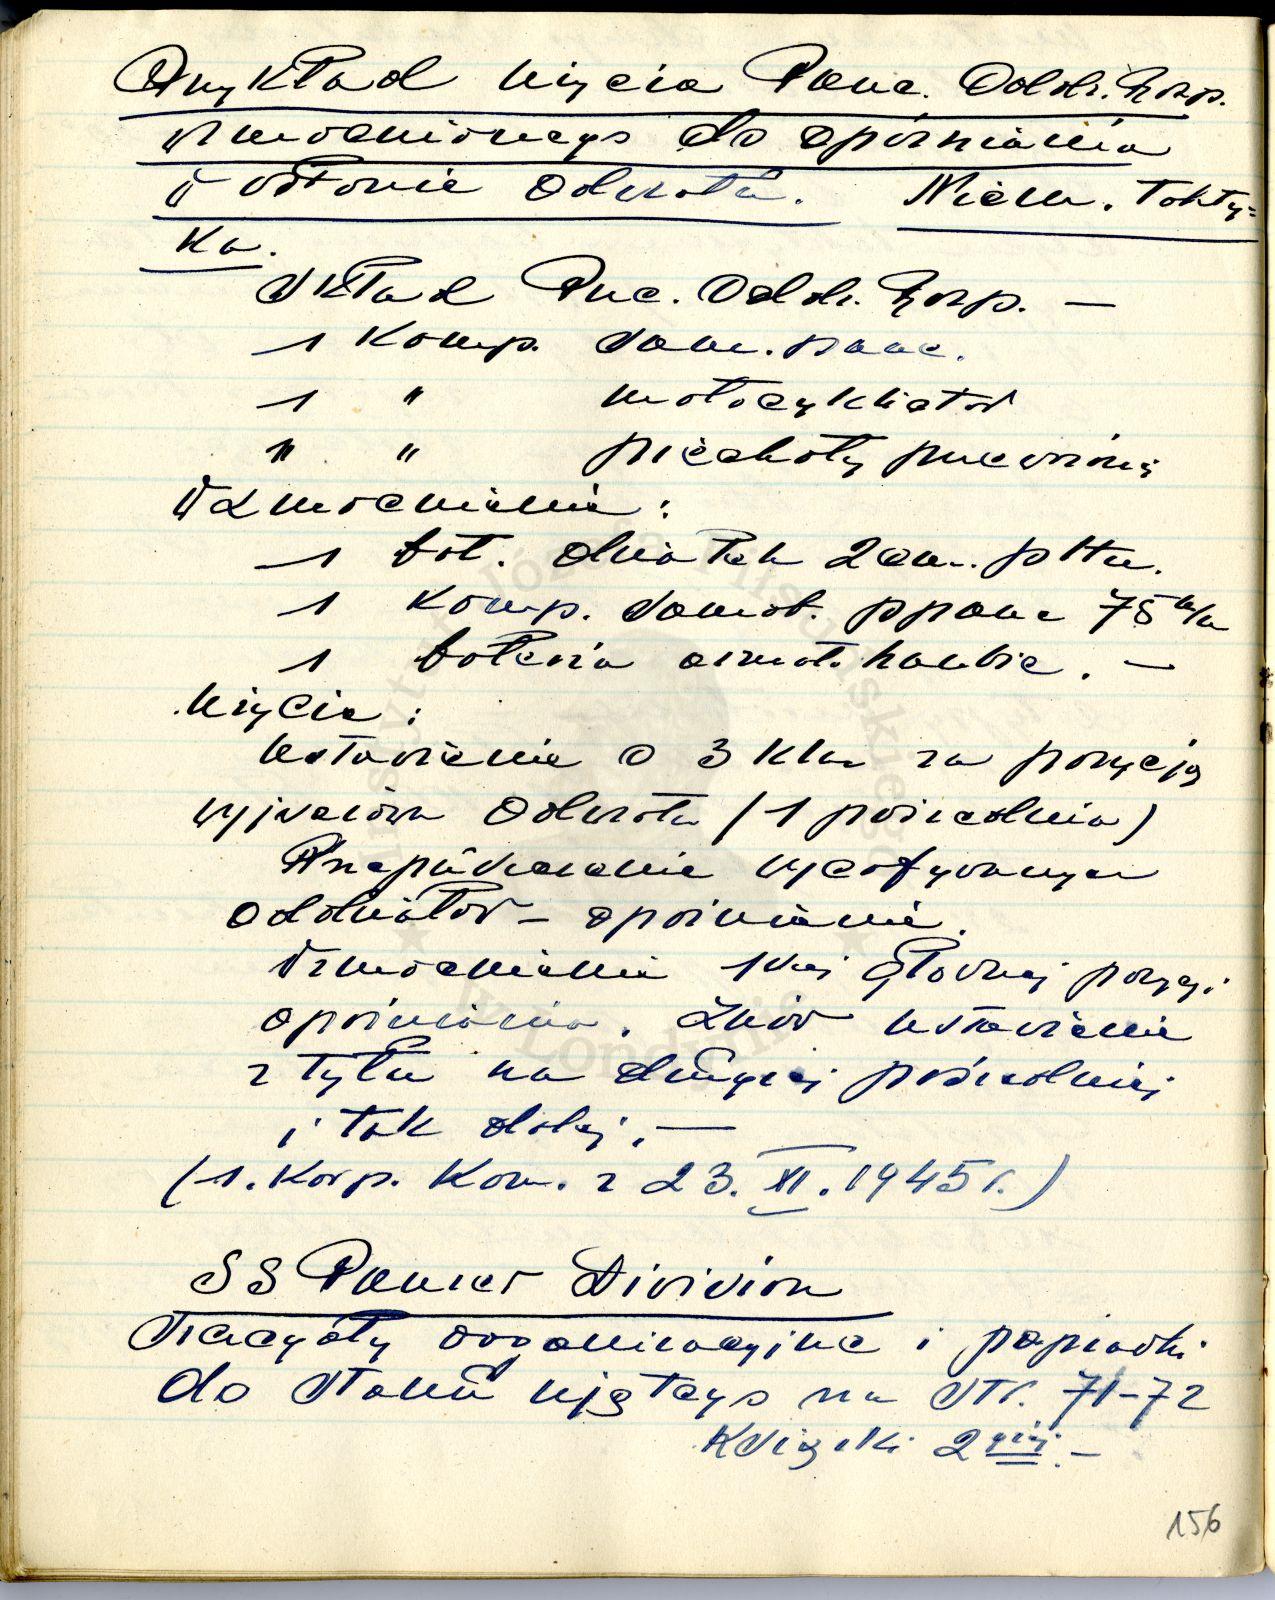 Przykład użycia Panc. Oddz. Rozp.
wzmocnionego do opóźniania
w osłonie odwrotu. Niem. Takty-
ka.
Skład Panc. Oddz. Rozp. —
1 Komp. sam. panc.
1 " motocyklistów
" " piechoty pancernej
Wzmocnienie:
1 bat. działek 2 cm. plotn.
1 Komp. samob. ppanc 75 m/m
1 bateria armato haubic. —
Użycie:
Ustawienie o 3 Klm za pozycją
wyjściową odwrotu (1 pośrednia)
Przepuszczenie wycofywanych
oddziałów – opóźnianie.
Wzmocnienie 1szej głównej pozycji
opóźniania. Znów ustawienie
z tyłu na drugiej pośredniej
i tak dalej. —
(1. Korp. Kom. z 23. XI. 1945 r.)
SS Panzer Division
Szczegóły organizacyjne i poprawki
do stanu ujętego na str. 71-72
Książki 2giej. —
156
Instytut Józefa Piłsudskiego
w Londynie